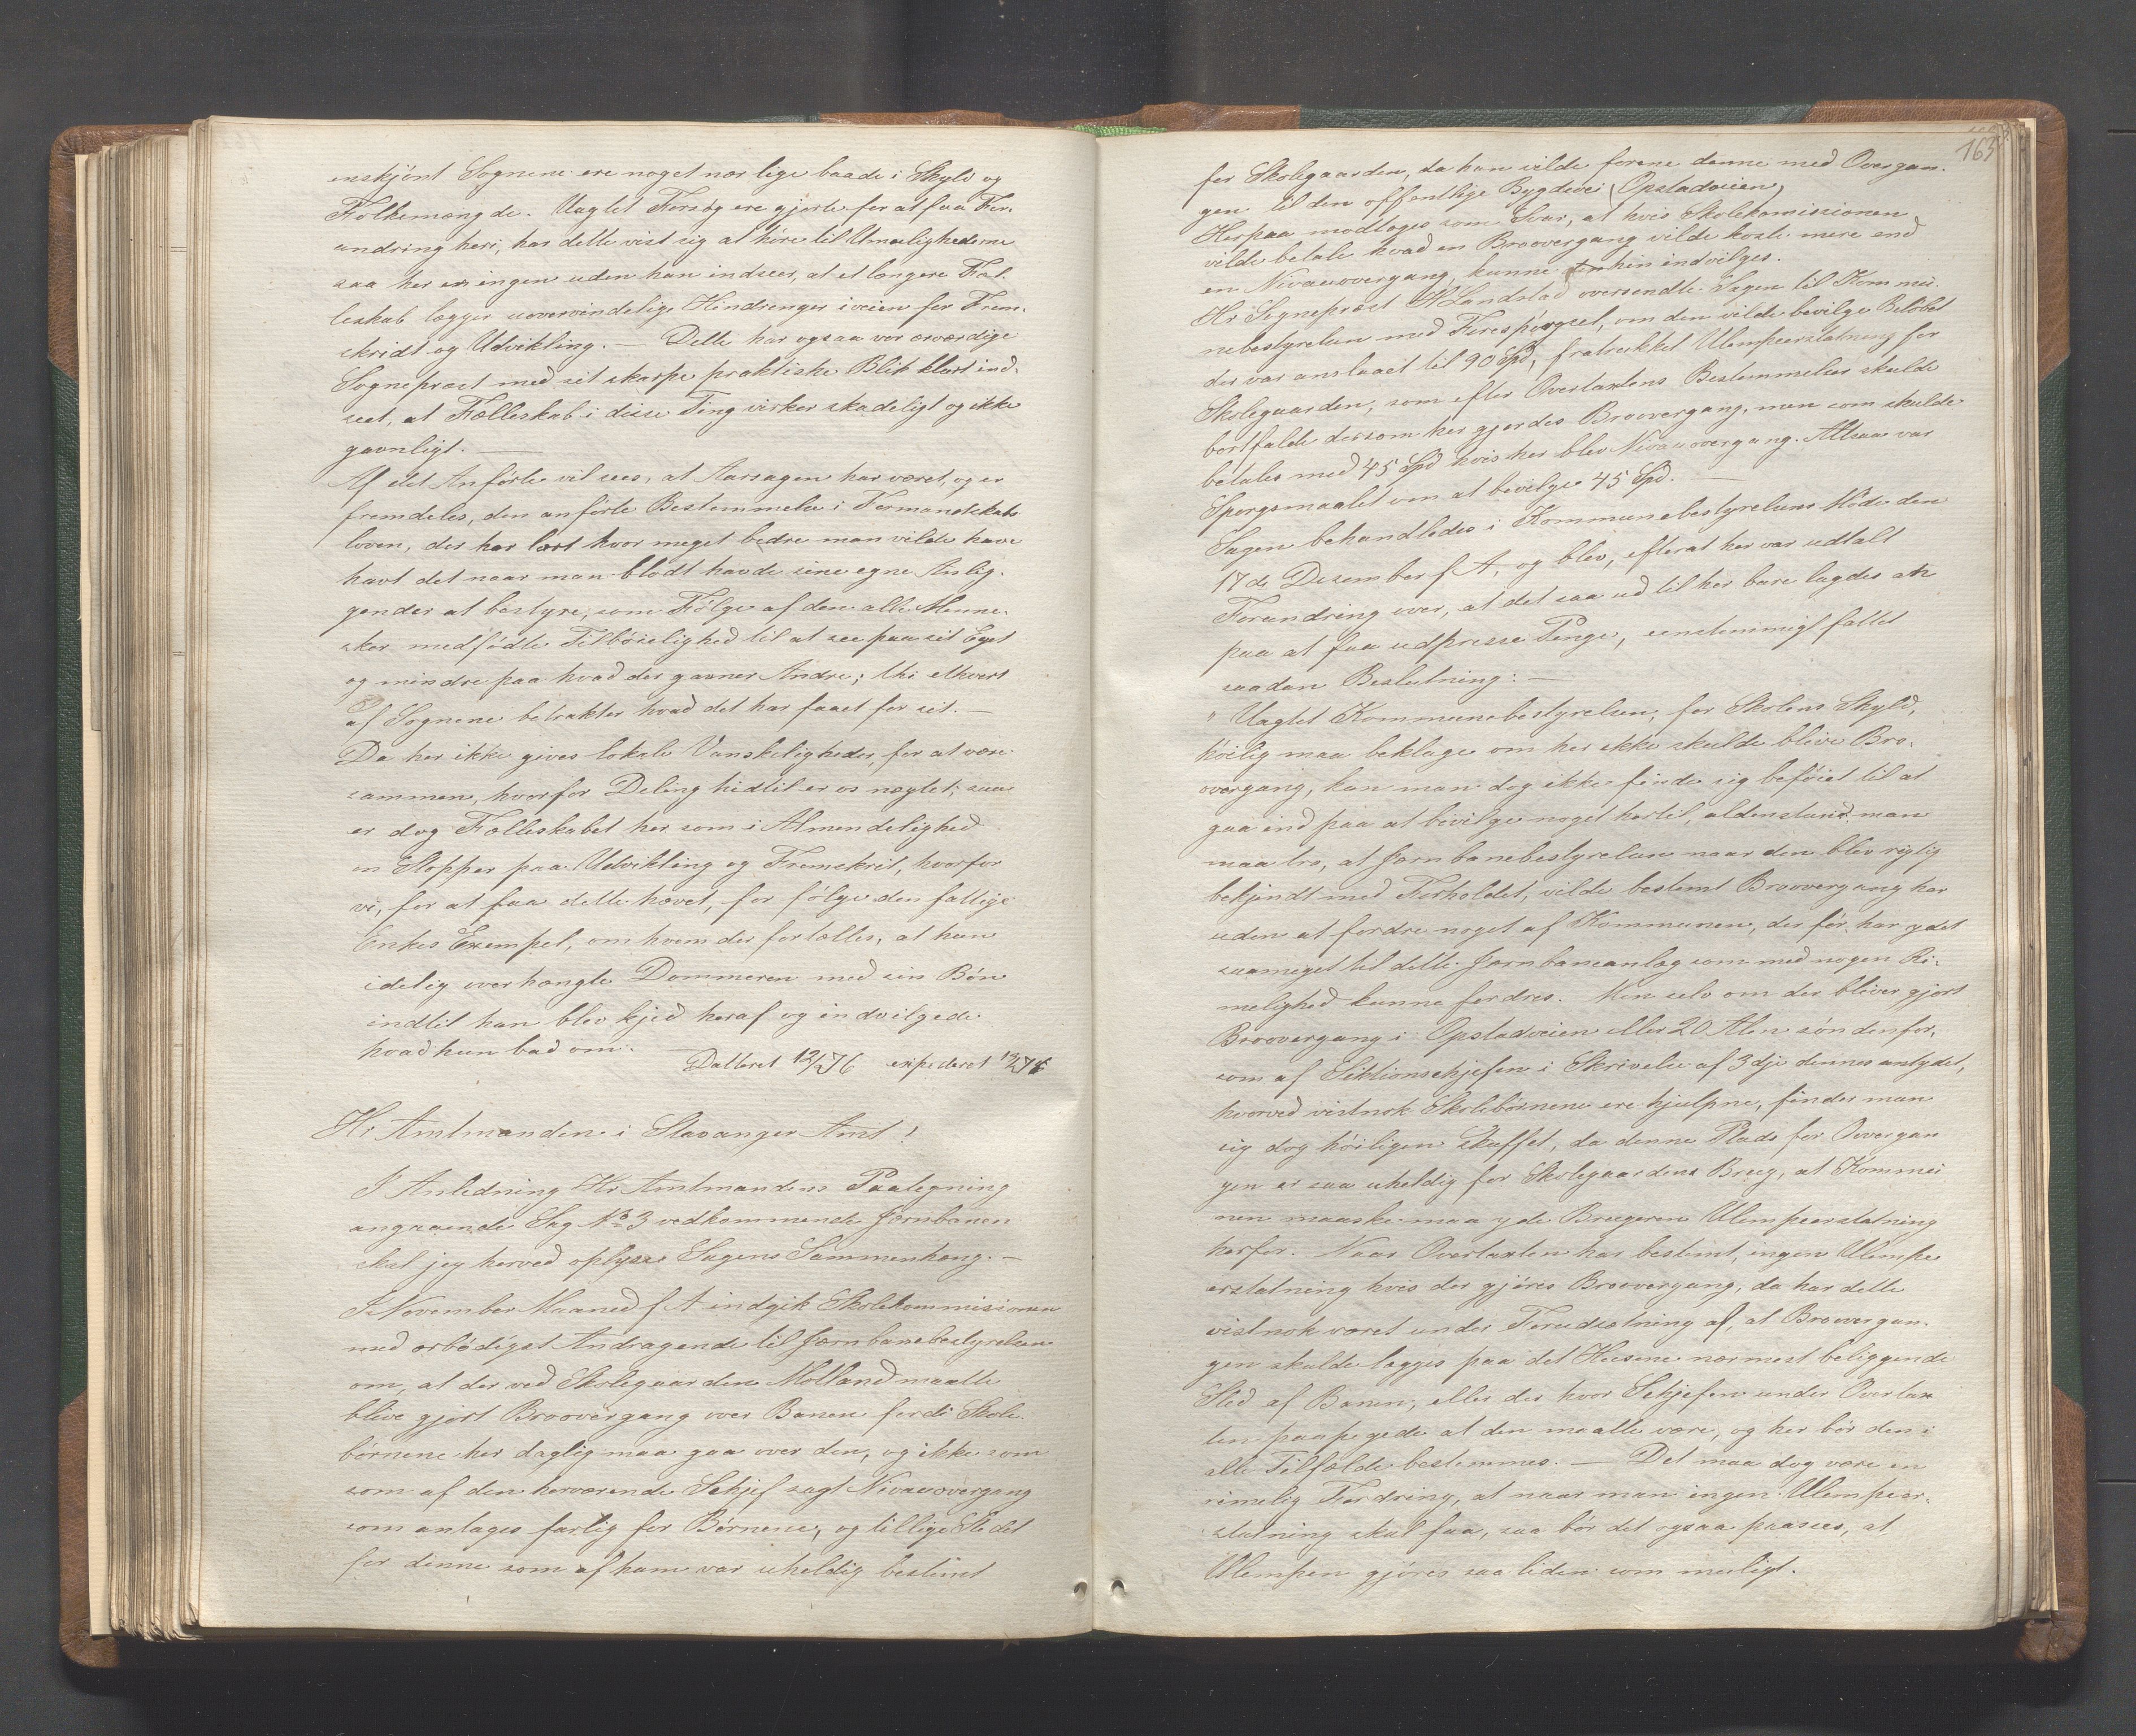 enskjönt Sognene ere noget nær lige baade i Skyld og
Folkemængde. Uagtet Forsøg ere gjorte for at faa For-
andring heri, har dette vist sig at höre til Umulighederne
saa her er ingen uden han indseer, at et længere Fæl-
leskab lægger uovervindelige Hindrenger iveien for Frem-
skridt og Udvikling. — Dette har ogsaa vor ærværdige
Sogneprest med sit skarpe praktiske Blik klart ind-
seet, at Fælleskab i disse Ting virker skadeligt og ikke
gavnligt. —
Af det Anförte vil sees, at Aarsagen har været, og er
fremdeles, den anförte Bestemmelse i Formandskabs
loven, der har lært hvor meget bedre man vilde have
havt det naar man blödt havde sine egne Anlig-
gender at bestyre, som Fölge af den alle Menne-
sker medfödte Tilböielighed til at see paa sit Eget
og mindre paa hvad der gavner Andre; thi ethvert
af Sognene betrakter hvad det har faaet for sit. —
Da her ikke gives lokale Vanskeligheder, for at være
sammen, hvorfor Deling hidtil er os nægtet; saa
er dog Fælleskabet her som i Almendelighed
en Stopper paa Udvikling og Fremskrit, hvorfor
vi, for at faa dette hævet, for fölge den fattige
Enkes Exempel, om hvem der fortælles, at hun
idelig overhængte Dommeren med sin Bön
indtil han blev kjed heraf og indvilgede
hvad hun bad om. —
Datteret 12/1 76 expederet 12/1 76
Hr Amtmanden i Stavanger Amt!
I Anledning Hr Amtmandens Paalegning
angaaende Sag No 3 vedkommende Jærnbanen
skal jeg herved oplyse Sagens Sammenhæng. —
I November Maaned f A indgik Skolekommisionen
med ærbödigst Andragende til Jærnbanebestyrelsen
om, at der ved Skolegaarden Motland maatte
blive gjort Broovergang over Banen fordi Skole-
börnene her daglig maa gaa over den, og ikke som
som af den herværende Schjef sagt Nivauovergang
som antages farlig for Börnene, og tillige Stedet
for denne som af ham var uheldig bestemt
165
for Skolegaarden, da han vilde forene denne med Overgan-
gen til den offentlige Bygdevei (Opstadveien)
Herpaa modtoges som Svar, at hvis Skolekomissionen
vilde betale hvad en Broovergang vilde koste mere end
en Nivauovergang, kunne hin indvilges.
Hr Sogneprest Landstad oversendte Sagen til Kommu-
nebestyrelsen med Forespörgsel, om den vilde bevilge Belöbet
der var anslaaet til 90 Spd, fratrukket Ulempeerstatning for
Skolegaarden, som efter Overtaxtens Bestemmelser skulde
bortfalde dersom her gjordes Broovergang, men som skulde
betales med 45 Spd hvis her blev Nivauovergang. Altsaa var
Spørgsmaalet om at bevilge 45 Spd. —
Sagen behandledes i Kommunebestyrelsens Möde den
17de Desember f A, og blev, efterat her var udtalt
Forundring over, at det saa ud til her bare lagdes an
paa at faa udpresse Penge, eenstemmigt fattet
saadan Beslutning: —
" Uagtet Kommunebestyrelsen, for Skolens Skyld,
höilig maa beklage om her ikke skulde blive Bro-
overgang, kan man dog ikke finde sig beföiet til at
gaa ind paa at bevilge noget hertil, aldenstund man
maa tro, at Jærnbanebestyrelsen naar den blev rigtig
bekjendt med Forholdet, vilde bestemt Broovergang her
uden at fordre noget af Kommunen, der för har ydet
saameget til dette Jærnbaneanlæg som med nogen Ri-
melighed kunne fordres. Men selv om der bliver gjort
Broovergang i Opstadveien eller 20 Alen söndenfor,
som af Sektionschjefen i Skrivelse af 3dje dennes antydet,
hvorved vistnok Skolebörnene ere hjulpne, finder man
sig dog höiligen skuffet, da denne Plads for Overgan
gen er saa uheldig for Skolegaardens Brug, at Kommu
nen maaske maa yde Brugeren Ulempeerstatning
herfor. Naar Overtaxten har bestemt, ingen Ulempe
erstatning hvis der gjöres Broovergang, da har dette
vistnok været under Forudsætning af, at Broovergan-
gen skulde lægges paa det Husene nærmest beliggende
Sted af Banen, eller der hvor Schjefen under Overtax
ten paapegede at den maatte være, og her bör den i
alle Tilfælde bestemmes. — Det maa dog være en
rimelig Fordring, at naar man ingen Ulempeer-
statning skal faa, saa bör det ogsaa paasees, at
Ulempen gjöres saa liden som muligt.